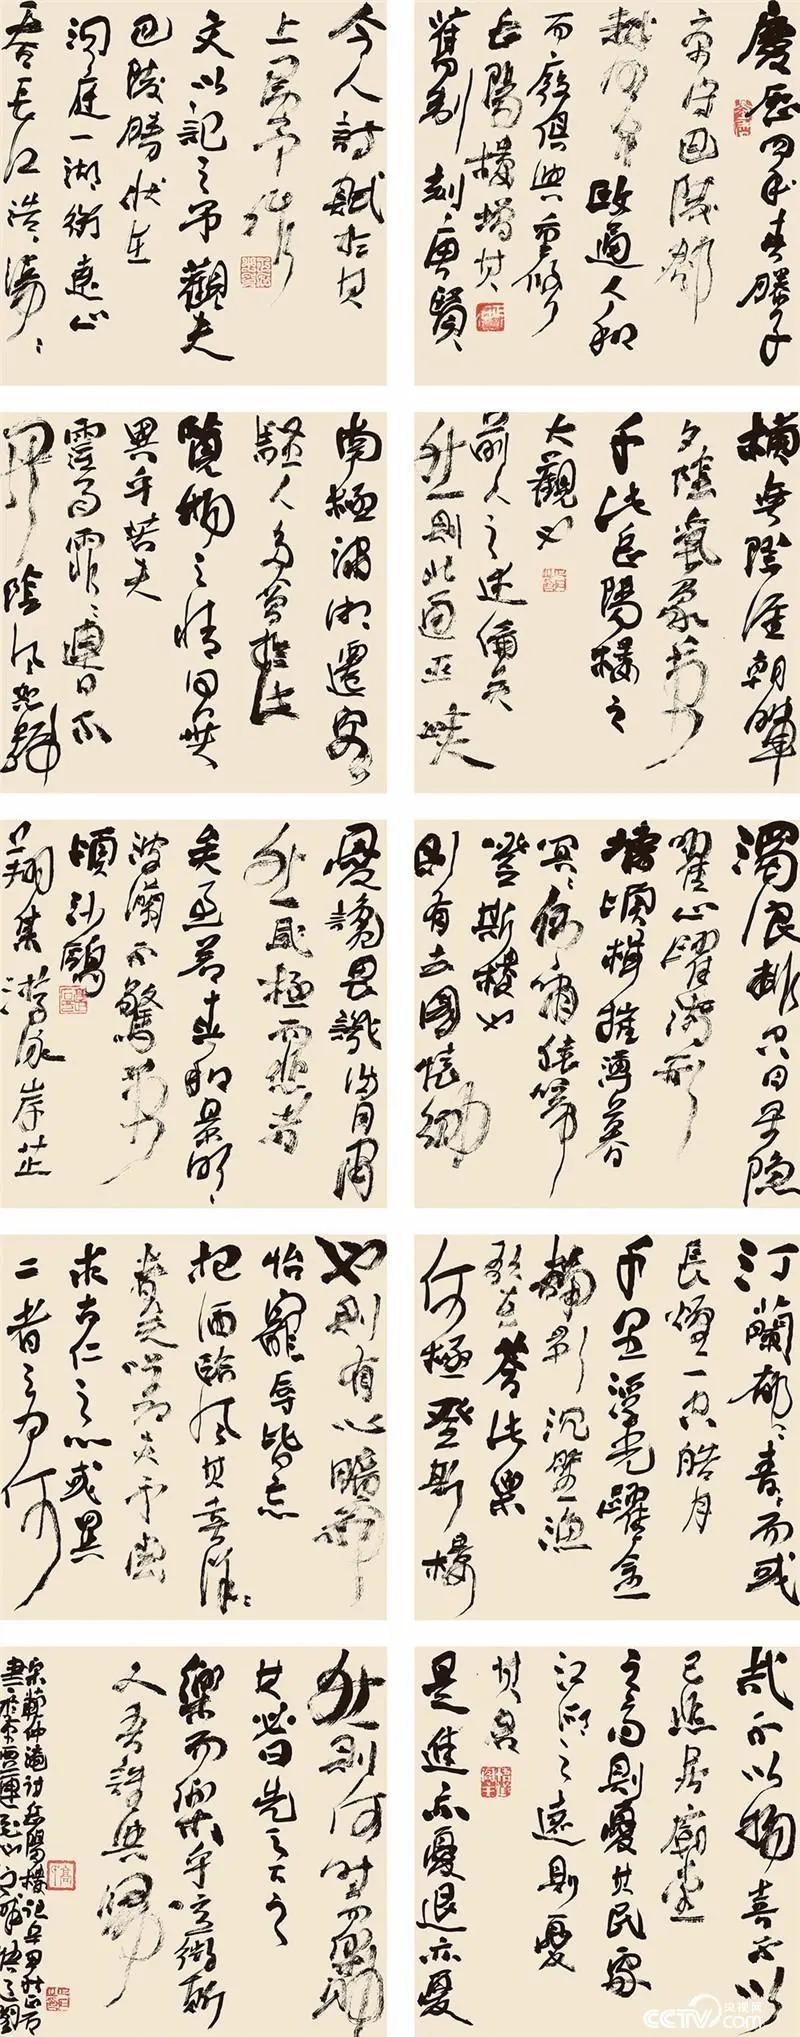 慶歷四年春滕子
京守巴陵郡
越明年政通人和
而廢俱興重修
岳陽樓增其
舊制刻唐賢
今人詩賦於其
上屬予作
文以記之予觀夫
巴陵勝狀在
洞庭一湖銜遠山
吞長江浩浩湯湯
橫無際涯朝暉
夕陰氣象萬
千此岳陽樓之
大觀也
前人之述備矣
然則北通巫峽
南極瀟湘遷客
騷人多會於此
覽物之情得無
異乎若夫
霪雨霏霏連月不
開陰風怒號
濁浪排空日星隱
耀山嶽潛形
檣傾楫摧薄暮
冥冥虎嘯猿啼
登斯樓也
則有去國懷鄉
憂讒畏譏滿目蕭
然感極而悲者
矣至若春和景明
波瀾不驚萬
頃沙鷗
翔集游泳岸芷
汀蘭郁郁青青而或
長煙一空皓月
千里浮光躍金
靜影沉璧漁
歌互答此樂
何極登斯樓
也則有心曠神
怡寵辱皆忘
把酒臨風其喜洋洋
者矣嗟夫予嘗
求古仁之心或異
二者之為何
哉不以物喜不以
己悲居廟堂
之高則憂其民處
江湖之遠則憂
其君
是進亦憂退亦憂
然則何時而樂耶
其必曰先之下之
樂而樂乎噫微斯
人吾誰與歸
宋范仲淹詩岳陽樓記
CCTV.com 央视网